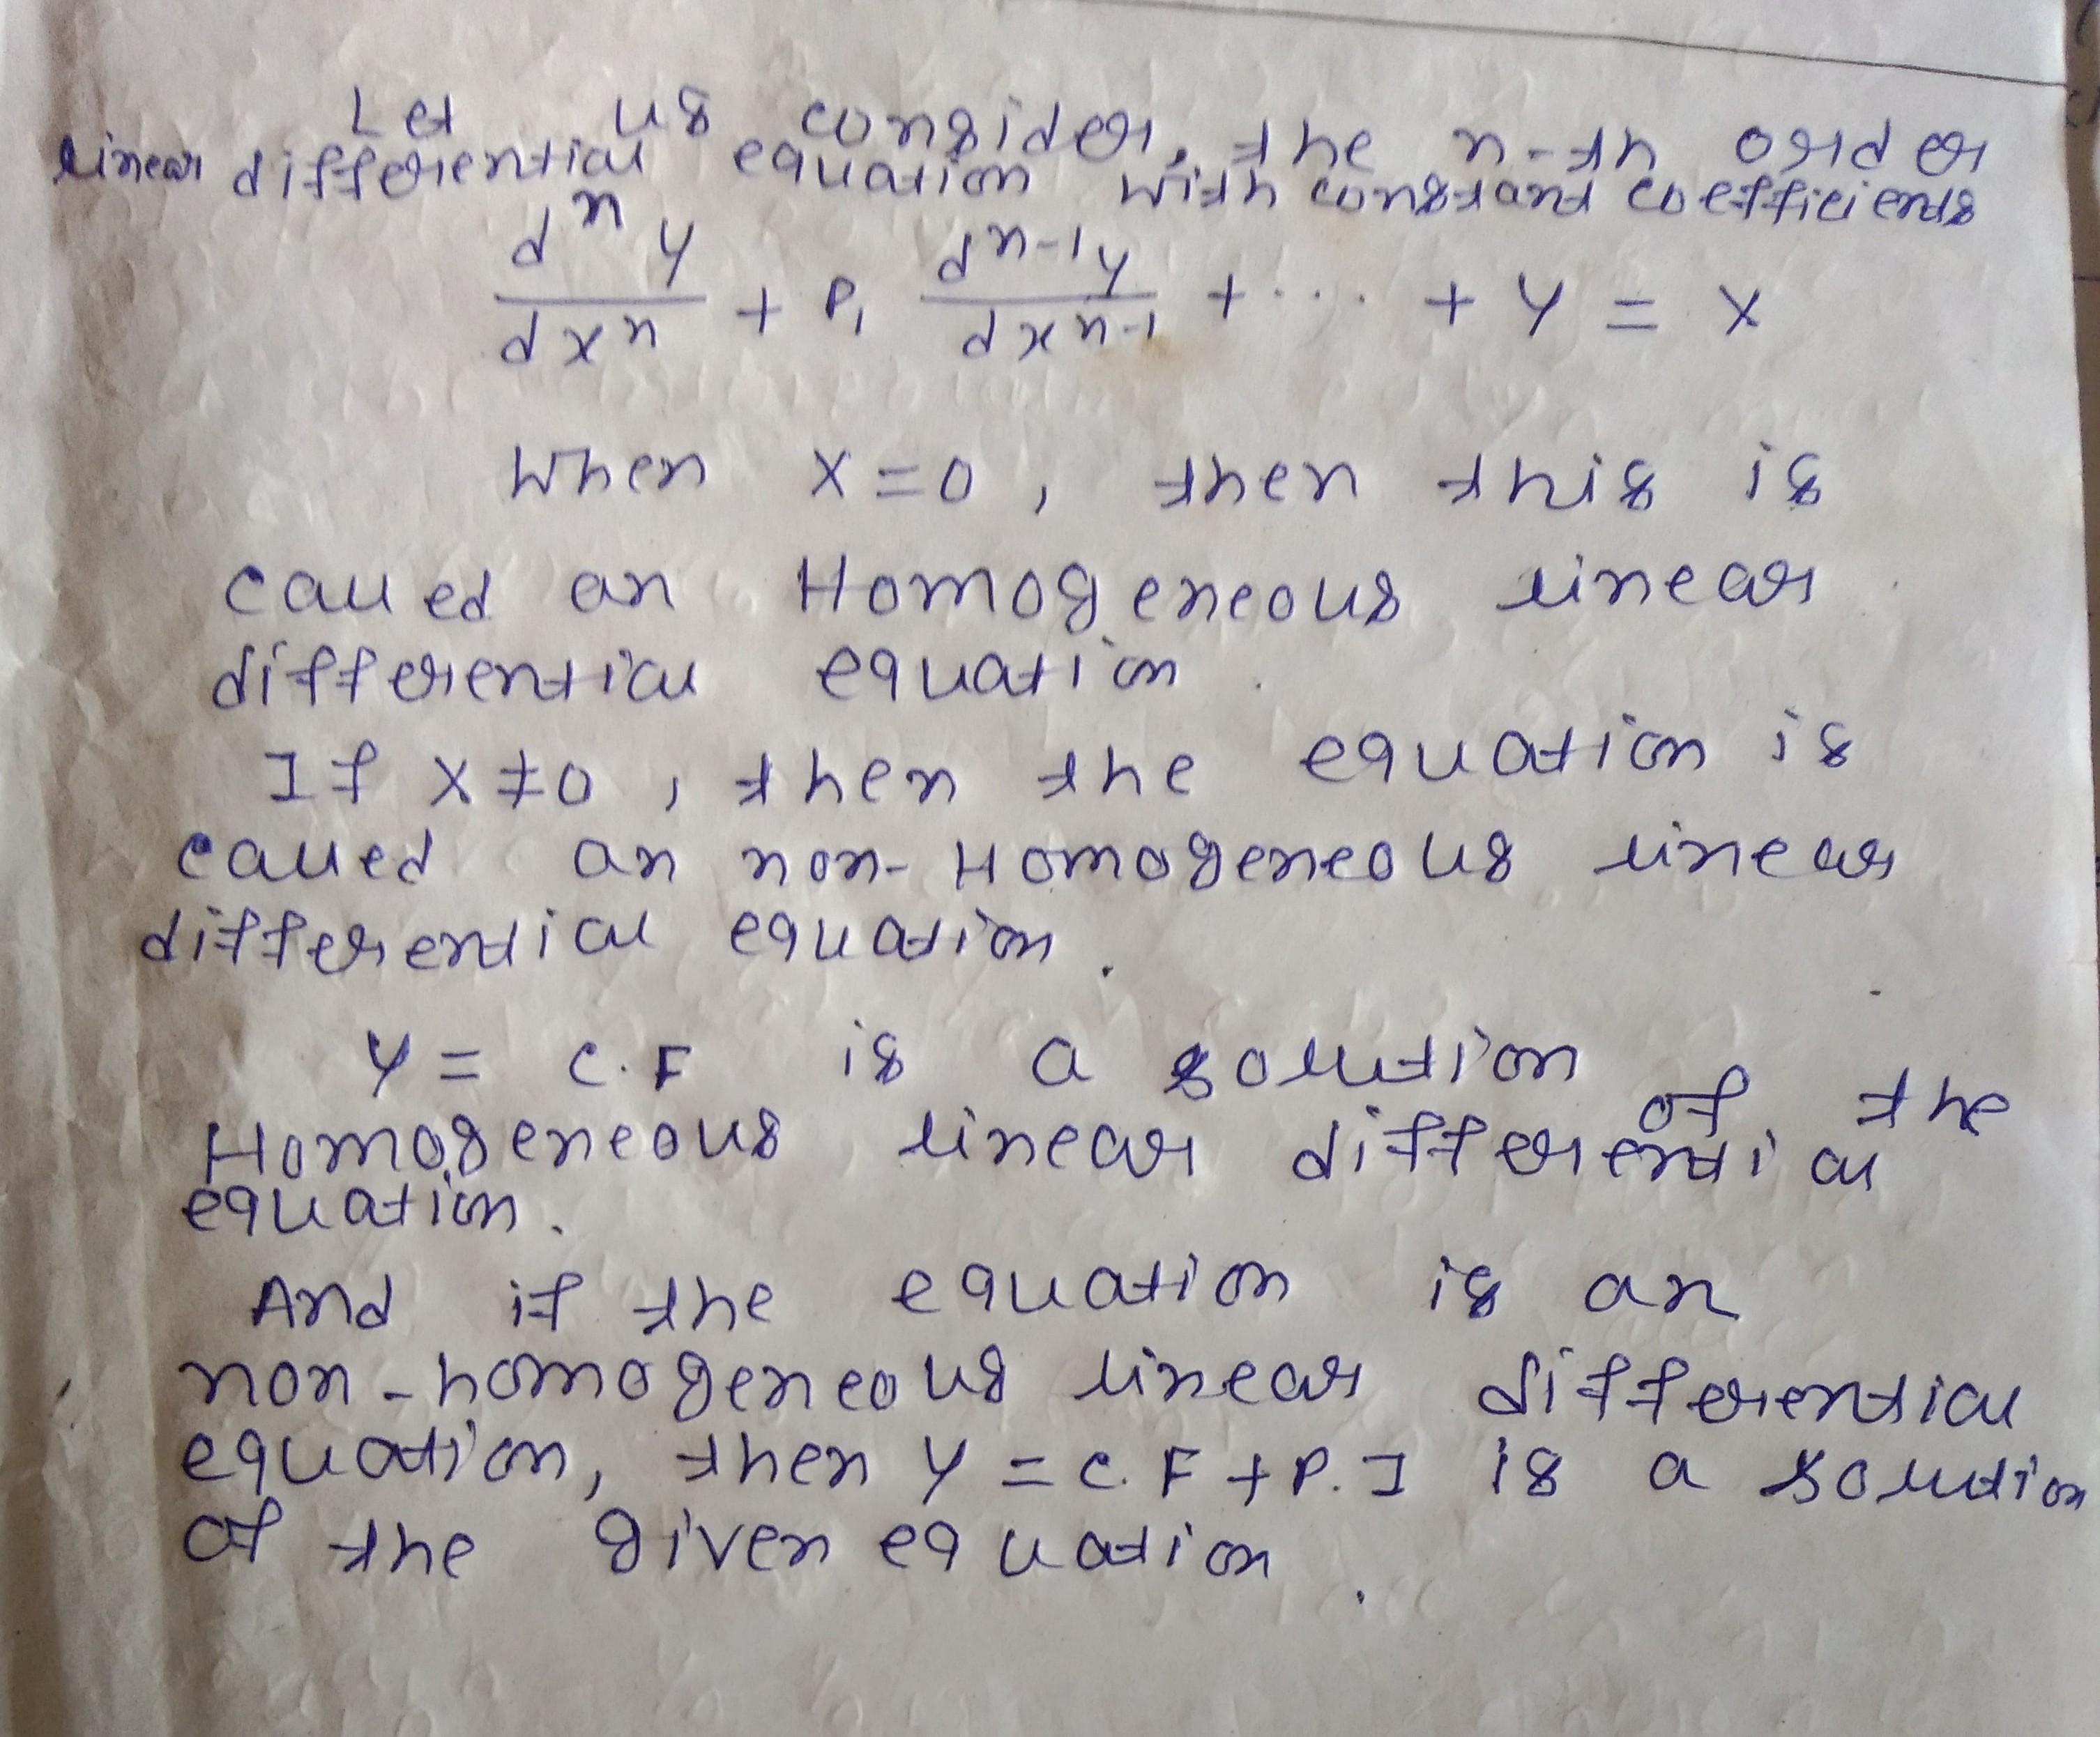 Let us consider, the n-th order
linear differential equation with constant coefficients
dⁿy/dxⁿ + P₁ dⁿ⁻¹y/dxⁿ⁻¹ + ... + y = X
When X=0, then this is
called an Homogeneous linear
differential equation.
If X≠0, then the equation is
called an non-Homogeneous linear
differential equation.
y = C.F is a solution of the
Homogeneous linear differential
equation.
And if the equation is an
non-homogeneous linear differential
equation, then y = C.F + P.I is a solution
of the given equation.